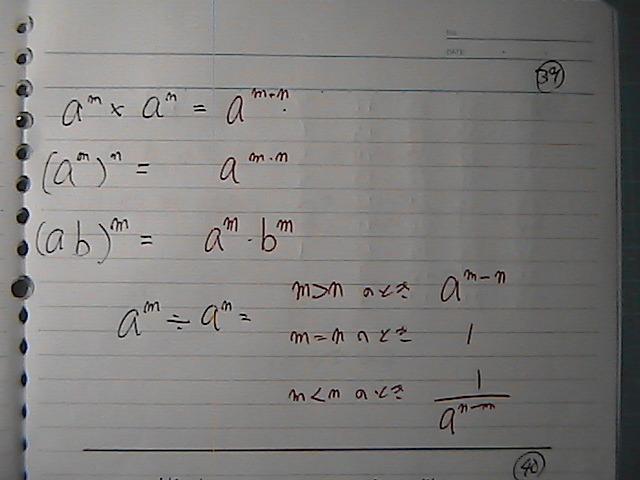 DATE
39
a^m × a^n = a^{m+n}.
(a^m)^n = a^{m·n}
(ab)^m = a^m · b^m
a^m ÷ a^n =
m>n のとき a^{m-n}
m=n のとき 1
m<n のとき 1/a^{n-m}
40